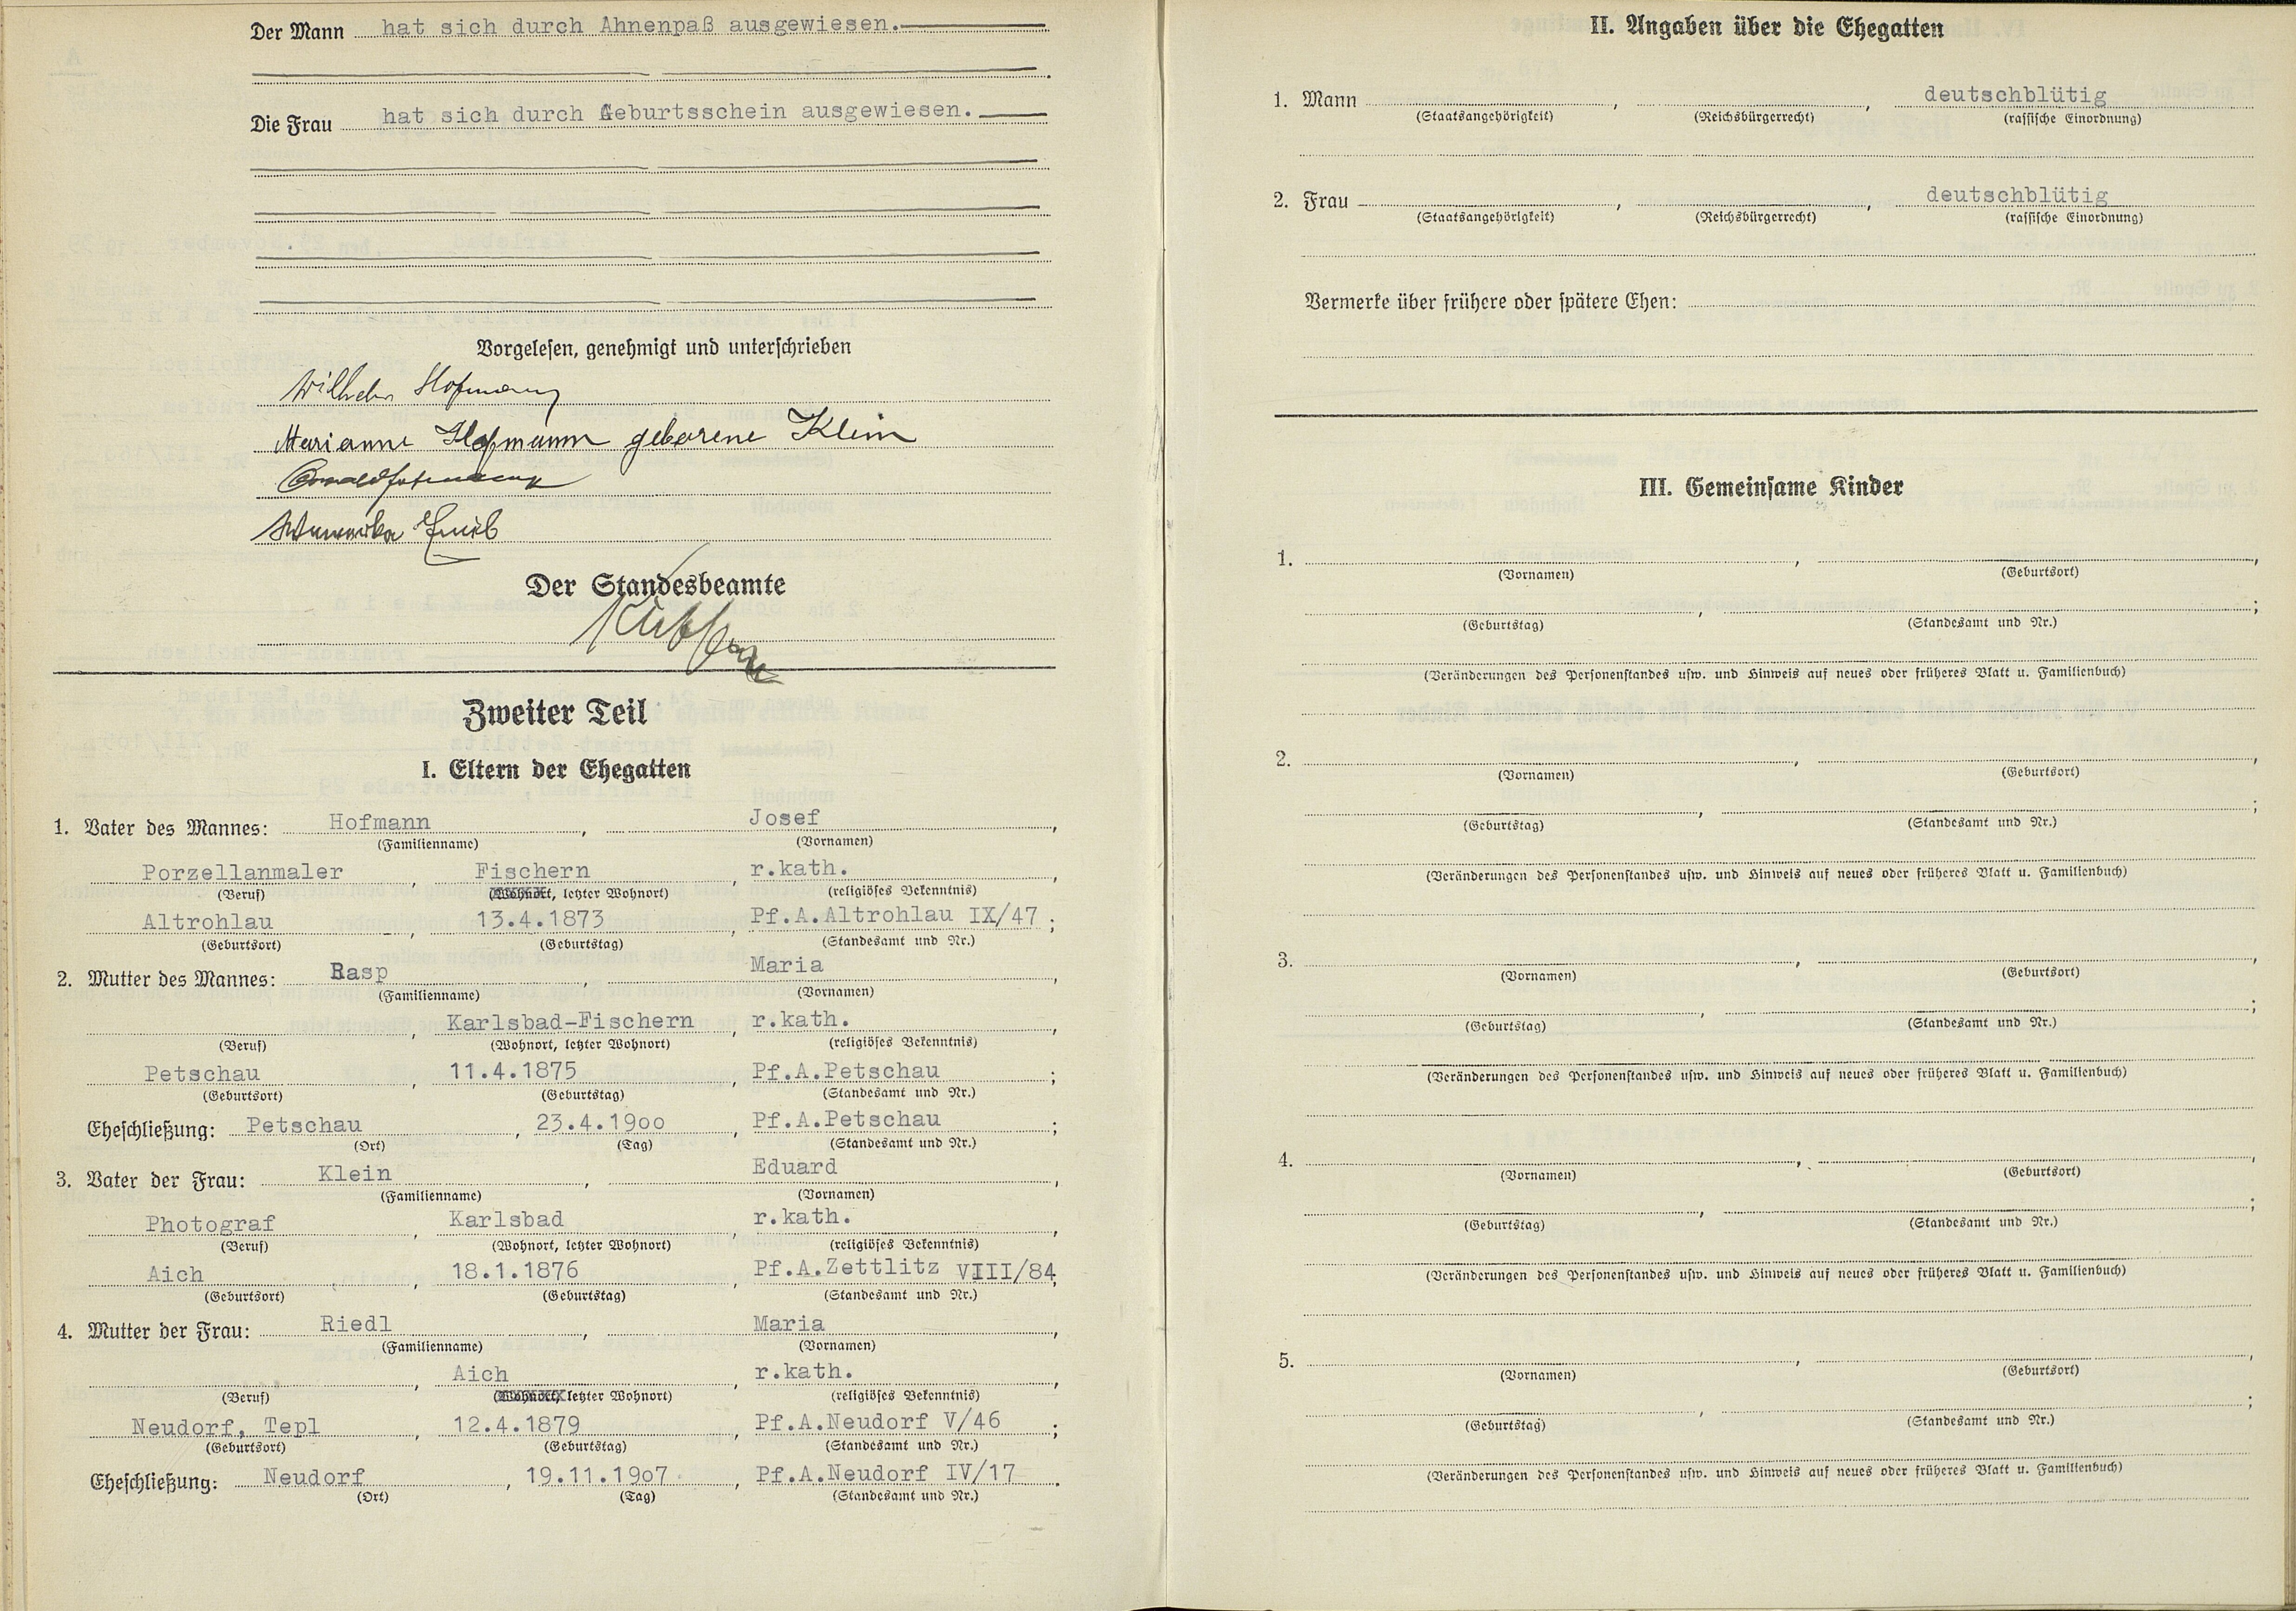 Der Mann hat sich durch Ahnenpaß ausgewiesen.
Die Frau hat sich durch Geburtsschein ausgewiesen.
Vorgelesen, genehmigt und unterschrieben
Wilhelm Hofmann
Marianne Hofmann geborene Klein
Emil
Der Standesbeamte
Zweiter Teil
I. Eltern der Ehegatten
1. Vater des Mannes: Hofmann, Josef,
(Familienname) (Vornamen)
Porzellanmaler, Fischern, r.kath.,
(Beruf) (Wohnort, letzter Wohnort) (religiöses Bekenntnis)
Altrohlau, 13.4.1873, Pf.A.Altrohlau IX/47;
(Geburtsort) (Geburtstag) (Standesamt und Nr.)
2. Mutter des Mannes: Rasp, Maria,
(Familienname) (Vornamen)
, Karlsbad-Fischern, r.kath.,
(Beruf) (Wohnort, letzter Wohnort) (religiöses Bekenntnis)
Petschau, 11.4.1875, Pf.A.Petschau;
(Geburtsort) (Geburtstag) (Standesamt und Nr.)
Eheschließung: Petschau, 23.4.19oo, Pf.A.Petschau;
(Ort) (Tag) (Standesamt und Nr.)
3. Vater der Frau: Klein, Eduard,
(Familienname) (Vornamen)
Photograf, Karlsbad, r.kath.,
(Beruf) (Wohnort, letzter Wohnort) (religiöses Bekenntnis)
Aich, 18.1.1876, Pf.A.Zettlitz VIII/84;
(Geburtsort) (Geburtstag) (Standesamt und Nr.)
4. Mutter der Frau: Riedl, Maria,
(Familienname) (Vornamen)
, Aich, r.kath.,
(Beruf) (Wohnort, letzter Wohnort) (religiöses Bekenntnis)
Neudorf, Tepl, 12.4.1879, Pf.A.Neudorf V/46;
(Geburtsort) (Geburtstag) (Standesamt und Nr.)
Eheschließung: Neudorf, 19.11.19o7, Pf.A.Neudorf IV/17.
(Ort) (Tag) (Standesamt und Nr.)
II. Angaben über die Ehegatten
1. Mann , , deutschblütig
(Staatsangehörigkeit) (Reichsbürgerrecht) (rassische Einordnung)
2. Frau , , deutschblütig
(Staatsangehörigkeit) (Reichsbürgerrecht) (rassische Einordnung)
Vermerke über frühere oder spätere Ehen:
III. Gemeinsame Kinder
1. , ,
(Vornamen) (Geburtsort)
, ;
(Geburtstag) (Standesamt und Nr.)
(Veränderungen des Personenstandes usw. und Hinweis auf neues oder früheres Blatt u. Familienbuch)
2. , ,
(Vornamen) (Geburtsort)
, ;
(Geburtstag) (Standesamt und Nr.)
(Veränderungen des Personenstandes usw. und Hinweis auf neues oder früheres Blatt u. Familienbuch)
3. , ,
(Vornamen) (Geburtsort)
, ;
(Geburtstag) (Standesamt und Nr.)
(Veränderungen des Personenstandes usw. und Hinweis auf neues oder früheres Blatt u. Familienbuch)
4. , ,
(Vornamen) (Geburtsort)
, ;
(Geburtstag) (Standesamt und Nr.)
(Veränderungen des Personenstandes usw. und Hinweis auf neues oder früheres Blatt u. Familienbuch)
5. , ,
(Vornamen) (Geburtsort)
, ;
(Geburtstag) (Standesamt und Nr.)
(Veränderungen des Personenstandes usw. und Hinweis auf neues oder früheres Blatt u. Familienbuch)